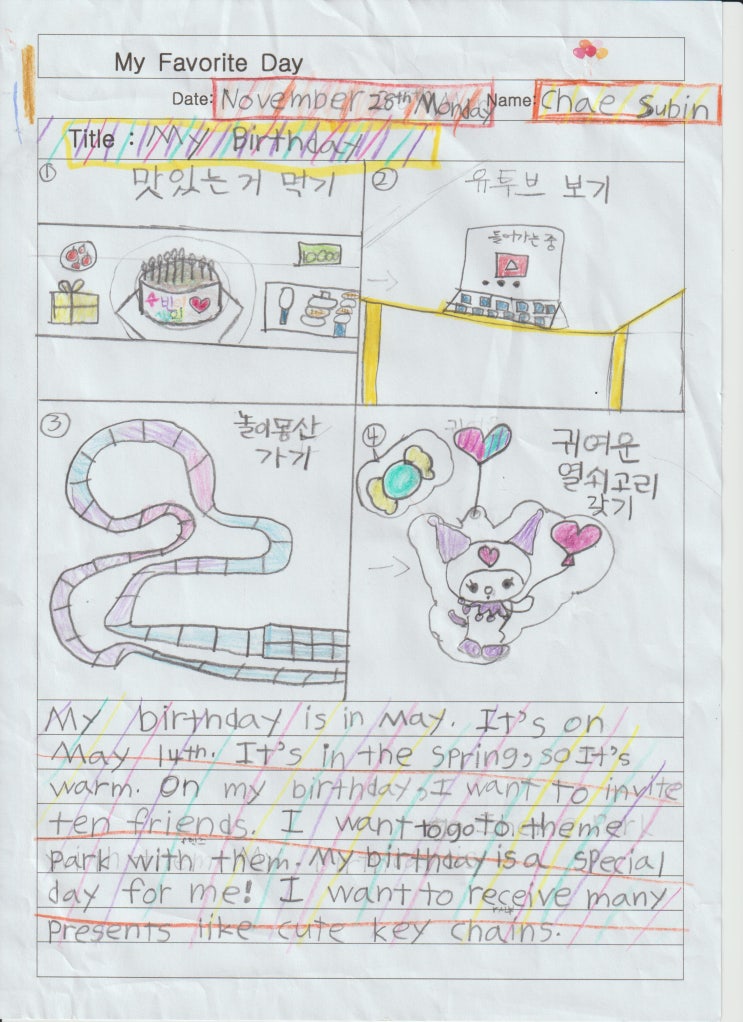 My Favorite Day
Date: November 28th Monday Name: Chae Subin
Title : My Birthday
① 맛있는거 먹기
10000
② 유투브 보기
들어가는 중
③ 놀이동산
가기
④ 귀여운
열쇠고리
갖기
My birthday is in May. It's on
May 14th. It's in the spring, so It's
warm. On my birthday, I want to invite
ten friends. I want to go to theme
park with them. My birthday is a special
day for me! I want to receive many
presents like cute key chains.